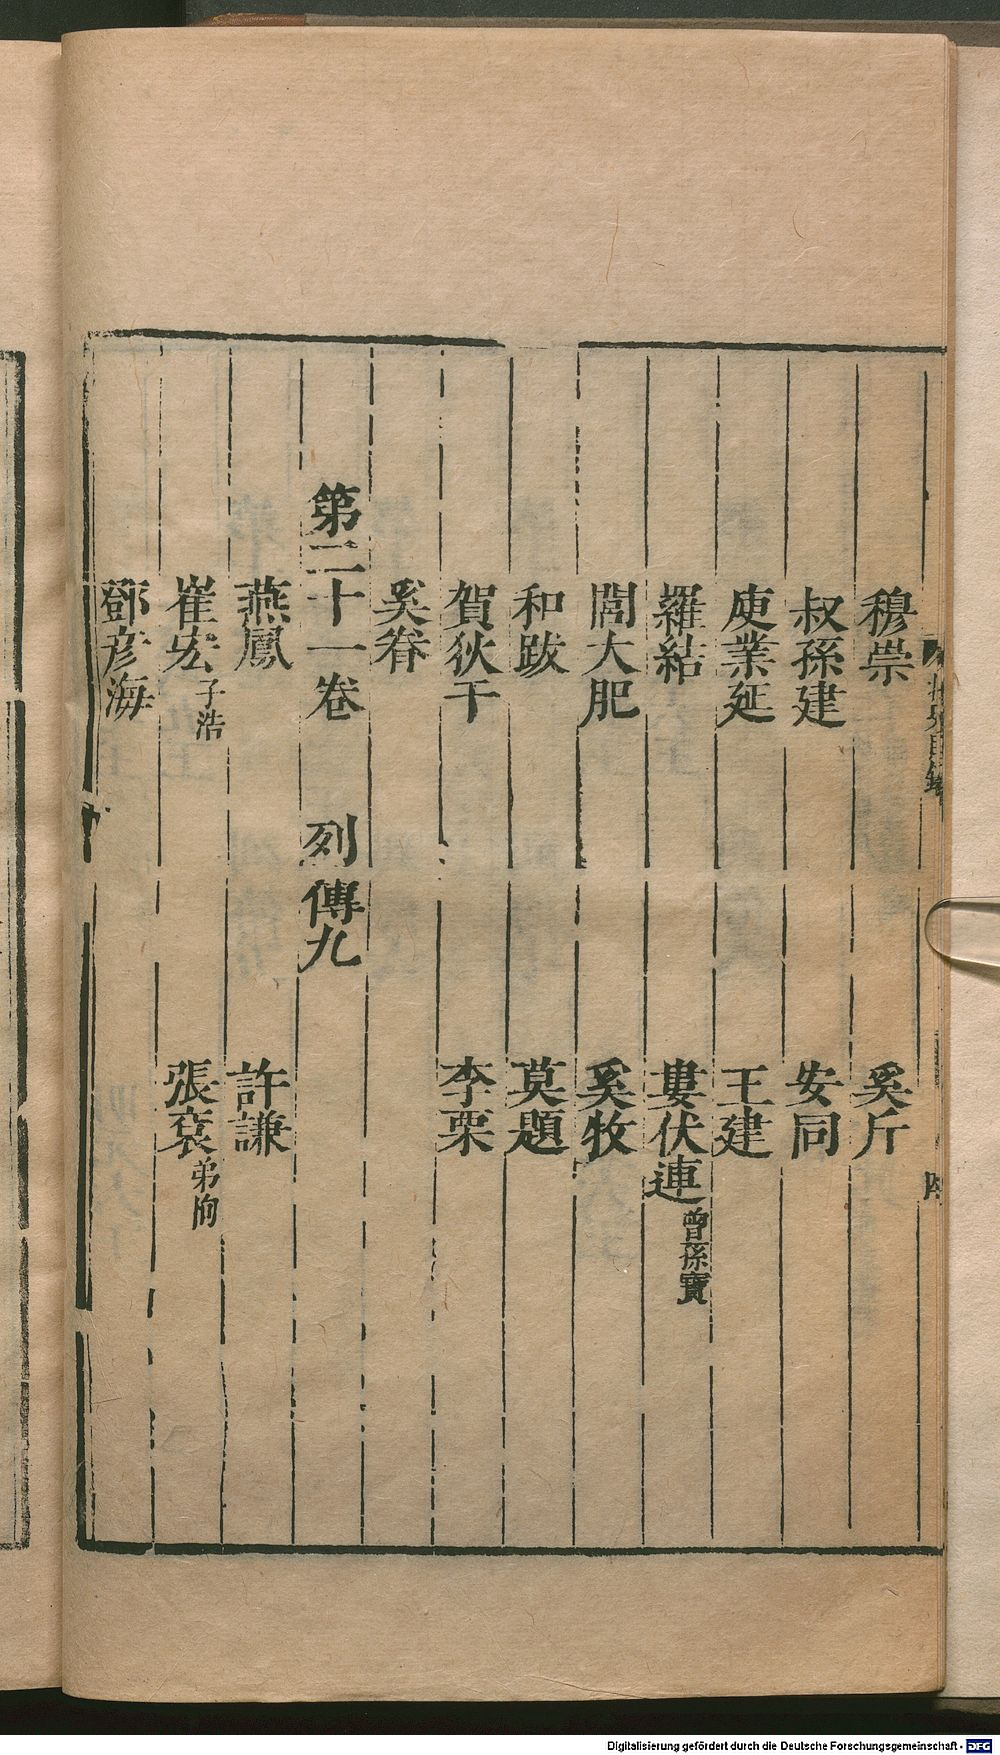 穆崇 奚斤
叔孫建 安同
庾業延 王建
羅結 婁伏連 曾孫寶
閭大肥 奚牧
和跋 莫題
賀狄干 李栗
奚眷
第二十一卷 列傳九
燕鳳 許謙
崔宏 子浩 張袞 弟恂
鄧彦海
Digitalisierung gefördert durch die Deutsche Forschungsgemeinschaft - DFG